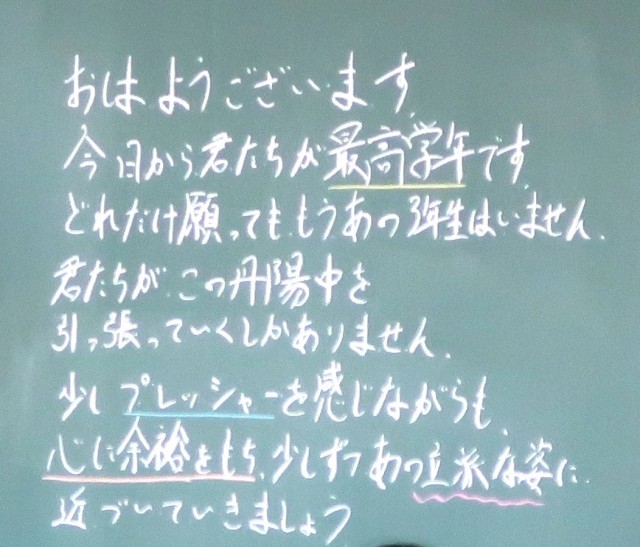 おはようございます
今日から君たちが最高学年です
どれだけ願っても.もうあの3年生はいません.
君たちが.この丹陽中を
引っ張っていくしかありません.
少しプレッシャーを感じながらも、
心に余裕をもち、少しずつあの立派な姿に
近づいていきましょう